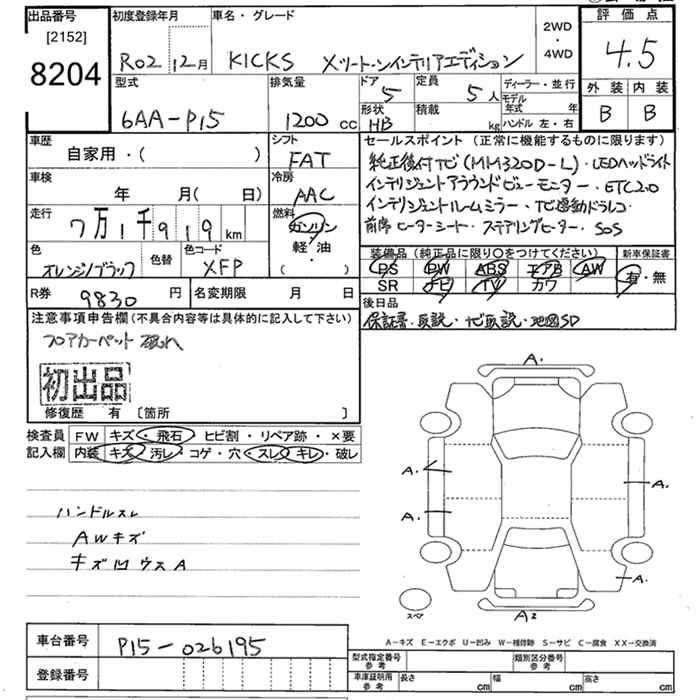 出品番号
[2152]
8204
初度登録年月
R02 12月
車名・グレード
KICKS Xツートーンインテリアエディション
2WD
・
4WD
評価点
4.5
外装 内装
B B
型式
6AA-P15
排気量
1200 cc
ドア
5
定員
5人
形状
HB
積載
kg
ディーラー・並行
モデル年式 年
ハンドル 左・右
車歴
自家用・( )
シフト
FAT
車検
年 月( 日)
冷房
AAC
走行
7万1千919km
燃料
ガソリン
軽・油
( )
色
オレンジ/ブラック
色替
色コード
XFP
R券 9830 円
名変期限 月 日
セールスポイント (正常に機能するものに限ります)
純正後付ナビ(MM320D-L)・LEDヘッドライト
インテリジェントアラウンドビューモニター・ETC2.0
インテリジェントルームミラー・ナビ連動ドラレコ
前席ヒーターシート・ステアリングヒーター・SOS
装備品 (純正品に限り○をつけてください) 新車保証書
PS PW ABS エアB AW
SR ナビ TV カワ
有・無
後日品
保証書・取説・ナビ取説・地図SD
注意事項申告欄 (不具合内容等は具体的に記入して下さい)
フロアカーペット 破れ
初出品
修復歴 有 [箇所 ]
検査員 FW キズ・飛石・ヒビ割・リペア跡・×要
記入欄 内装 キズ・汚レ・コゲ・穴・スレ・キレ・破レ
ハンドルスレ
AWキズ
キズ凹ウスA
A.
A.
A.
A.
A.
スペア
A2
A-キズ E-エクボ U-凹み W-補修跡 S-サビ C-腐食 XX-交換済
車台番号 P15-026195
登録番号
型式指定番号 参考
類別区分番号 参考
車庫証明用 参考 長さ cm 幅 cm 高さ cm